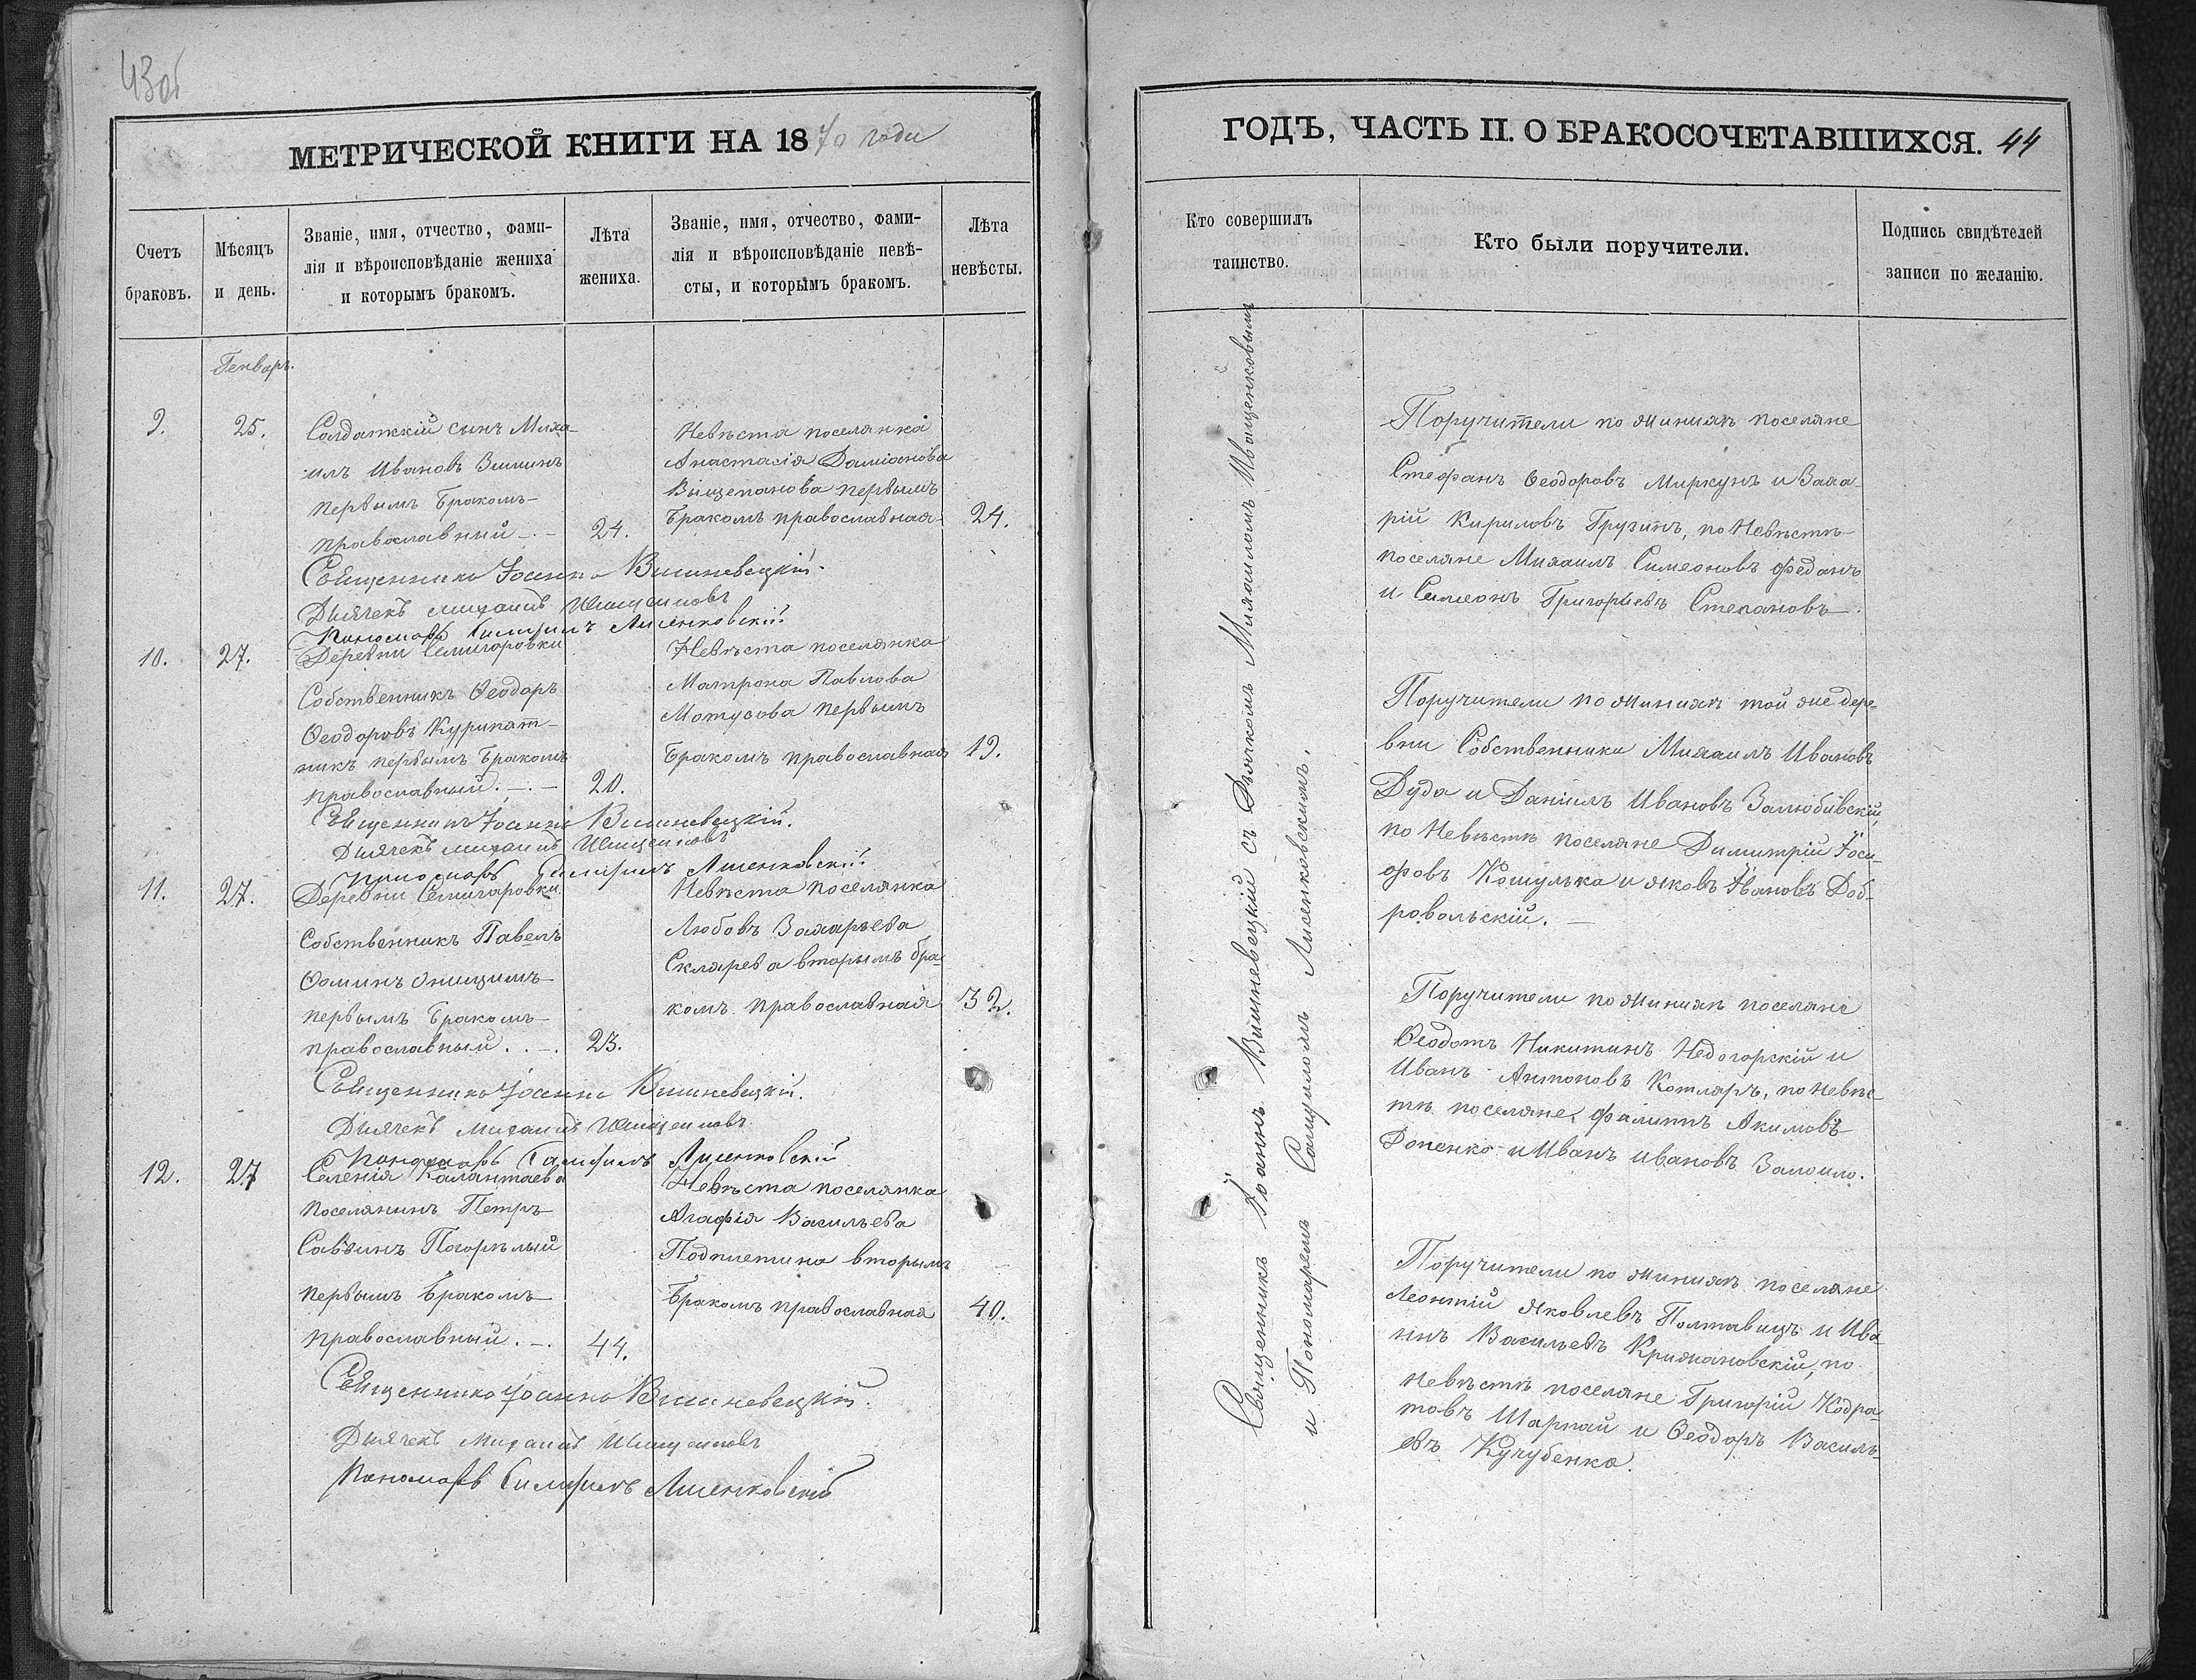 43об
МЕТРИЧЕСКОЙ КНИГИ НА 1870 года
Счетъ
браковъ.
Мѣсяцъ
и день.
Званіе, имя, отчество, фами-
лія и вѣроисповѣданіе жениха
и которымъ бракомъ.
Лѣта
жениха.
Званіе, имя, отчество, фами-
лія и вѣроисповѣданіе невѣ-
сты, и которымъ бракомъ.
Лѣта
невѣсты.
Генварь.
9.
25.
Солдатскій сынъ Миха-
илъ Ивановъ Зиминъ
первымъ бракомъ
православный
24.
Невѣста поселянка
Анастасія Даміанова
Вищепанова первымъ
бракомъ православная
24.
Священникъ Іоаннъ Вишневецкій.
Дьячекъ Михаилъ
Пономарь Лисенковскій
10.
27.
Деревни Семигоровки
Собственникъ Ѳеодоръ
Ѳеодоровъ Курипат-
никъ первымъ бракомъ
православный.
20.
Невѣста поселянка
Матрона Павлова
Мотусова первымъ
бракомъ православная
19.
Священникъ Іоаннъ Вишневецкій.
Дьячекъ Михаилъ
Пономарь Лисенковскій
11.
27.
Деревни Семигоровки
Собственникъ Павелъ
Ѳоминъ Онищимъ
первымъ бракомъ
православный.
23.
Невѣста поселянка
Любовь Захарьева
Склярева вторымъ бра-
комъ православная
32.
Священникъ Іоаннъ Вишневецкій.
Дьячекъ Михаилъ
Пономарь Лисенковскій
12.
27
Селенія Калантаева
поселянинъ Петръ
Саввинъ Погорѣлый
первымъ бракомъ
православный.
44.
Невѣста поселянка
Агафія Васильева
Подплетина вторымъ
бракомъ православная
40.
Священникъ Іоаннъ Вишневецкій.
Дьячекъ Михаилъ
Пономарь Лисенковскій
ГОДЪ, ЧАСТЬ II. О БРАКОСОЧЕТАВШИХСЯ. 44
Кто совершилъ
таинство.
Кто были поручители.
Подпись свидѣтелей
записи по желанію.
Священникъ Іоаннъ Вишневецкій съ Дьячкомъ Михаиломъ Иващенковымъ
и Пономаремъ Лисенковскимъ.
Поручители по женихѣ поселяне
Стефанъ Ѳеодоровъ Миркунъ и Заха-
рій Кириловъ Грузинъ, по Невѣстѣ
поселяне Михаилъ Симеоновъ Феданъ
и Симеонъ Григорьевъ Степановъ.
Поручители по женихѣ той же дере-
вни Собственники Михаилъ Ивановъ
Дуда и Даніилъ Ивановъ Залюбивскій,
по Невѣстѣ поселяне Димитрій Іоси-
фовъ Кошулька и Яковъ Ивановъ Доб-
ровольскій.
Поручители по женихѣ поселяне
Ѳеодотъ Никитинъ Недогорскій и
Иванъ Антоновъ Котляръ, по невѣс-
тѣ поселяне Филиппъ Акимовъ
Допенко и Иванъ Ивановъ Замоило.
Поручители по женихѣ поселяне
Леонтій Яковлевъ Полтавецъ и Ива-
нъ Васильевъ Крижановскій, по
невѣстѣ поселяне Григорій Кодра-
товъ Шарпай и Ѳеодоръ Василь-
евъ Кучубенко.